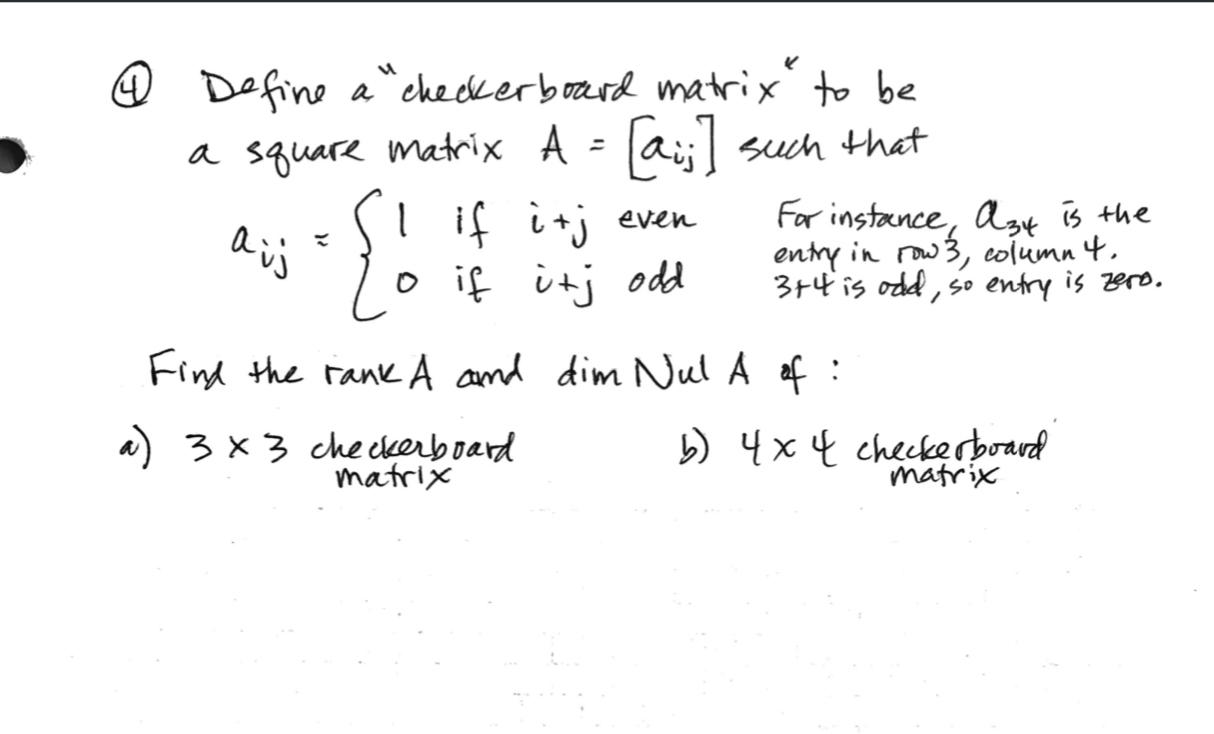 ④ Define a "checkerboard matrix" to be
a square matrix A = [aᵢⱼ] such that
aᵢⱼ = { 1 if i+j even
0 if i+j odd
For instance, a₃₄ is the
entry in row 3, column 4.
3+4 is odd, so entry is zero.
Find the rank A and dim Nul A of :
a) 3 × 3 checkerboard
matrix
b) 4 × 4 checkerboard
matrix